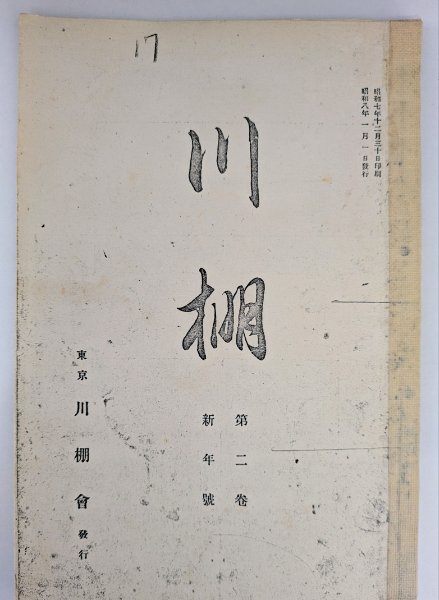 17
昭和七年十二月三十日印刷
昭和八年一月一日發行
川棚
第二卷
新年號
東京 川棚會 發行